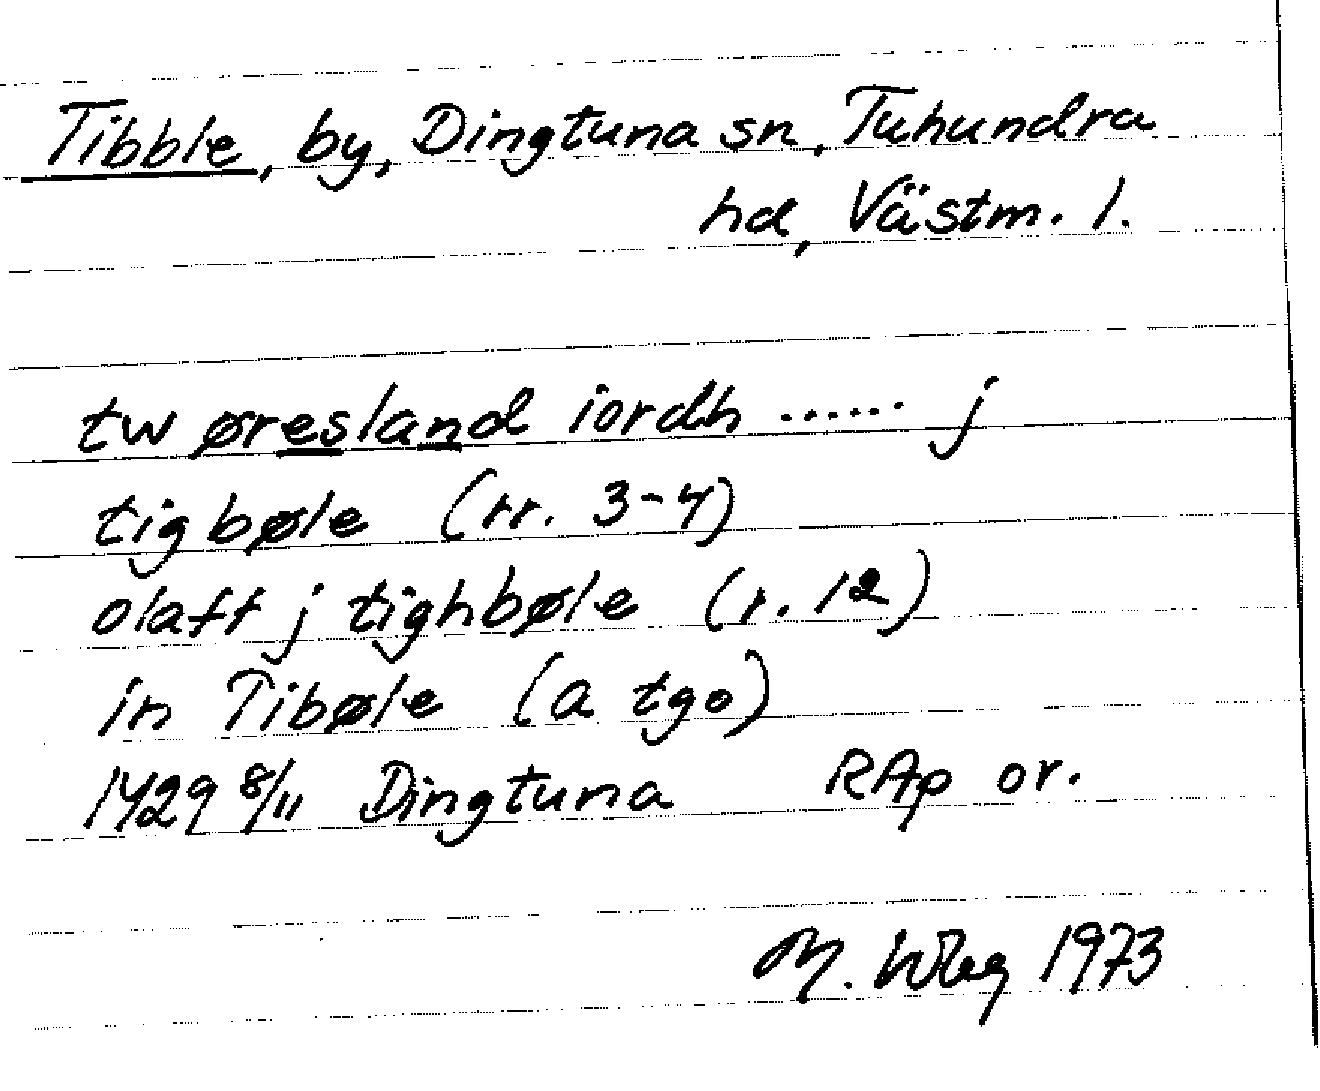 Tibble, by, Dingtuna sn, Tuhundra
hd, Västm. l.
tw øresland iordh ...... j
tigbøle (rr. 3-4)
olaff j tighbøle (r. 12)
in Tibøle (a tgo)
1429 8/11 Dingtuna RAp or.
M. 1973